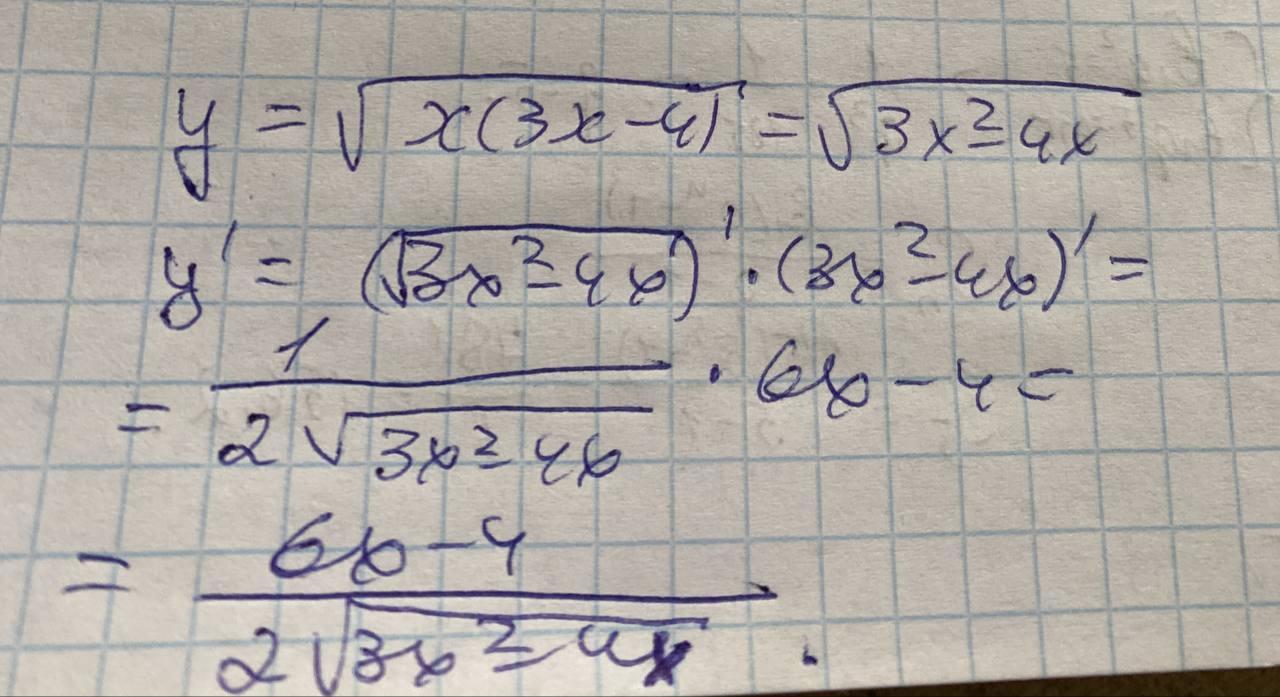 y = √(x(3x-4)) = √(3x²-4x)
y' = (√(3x²-4x))' · (3x²-4x)' =
= 1/(2√(3x²-4x)) · 6x - 4 =
= (6x-4)/(2√(3x²-4x)).